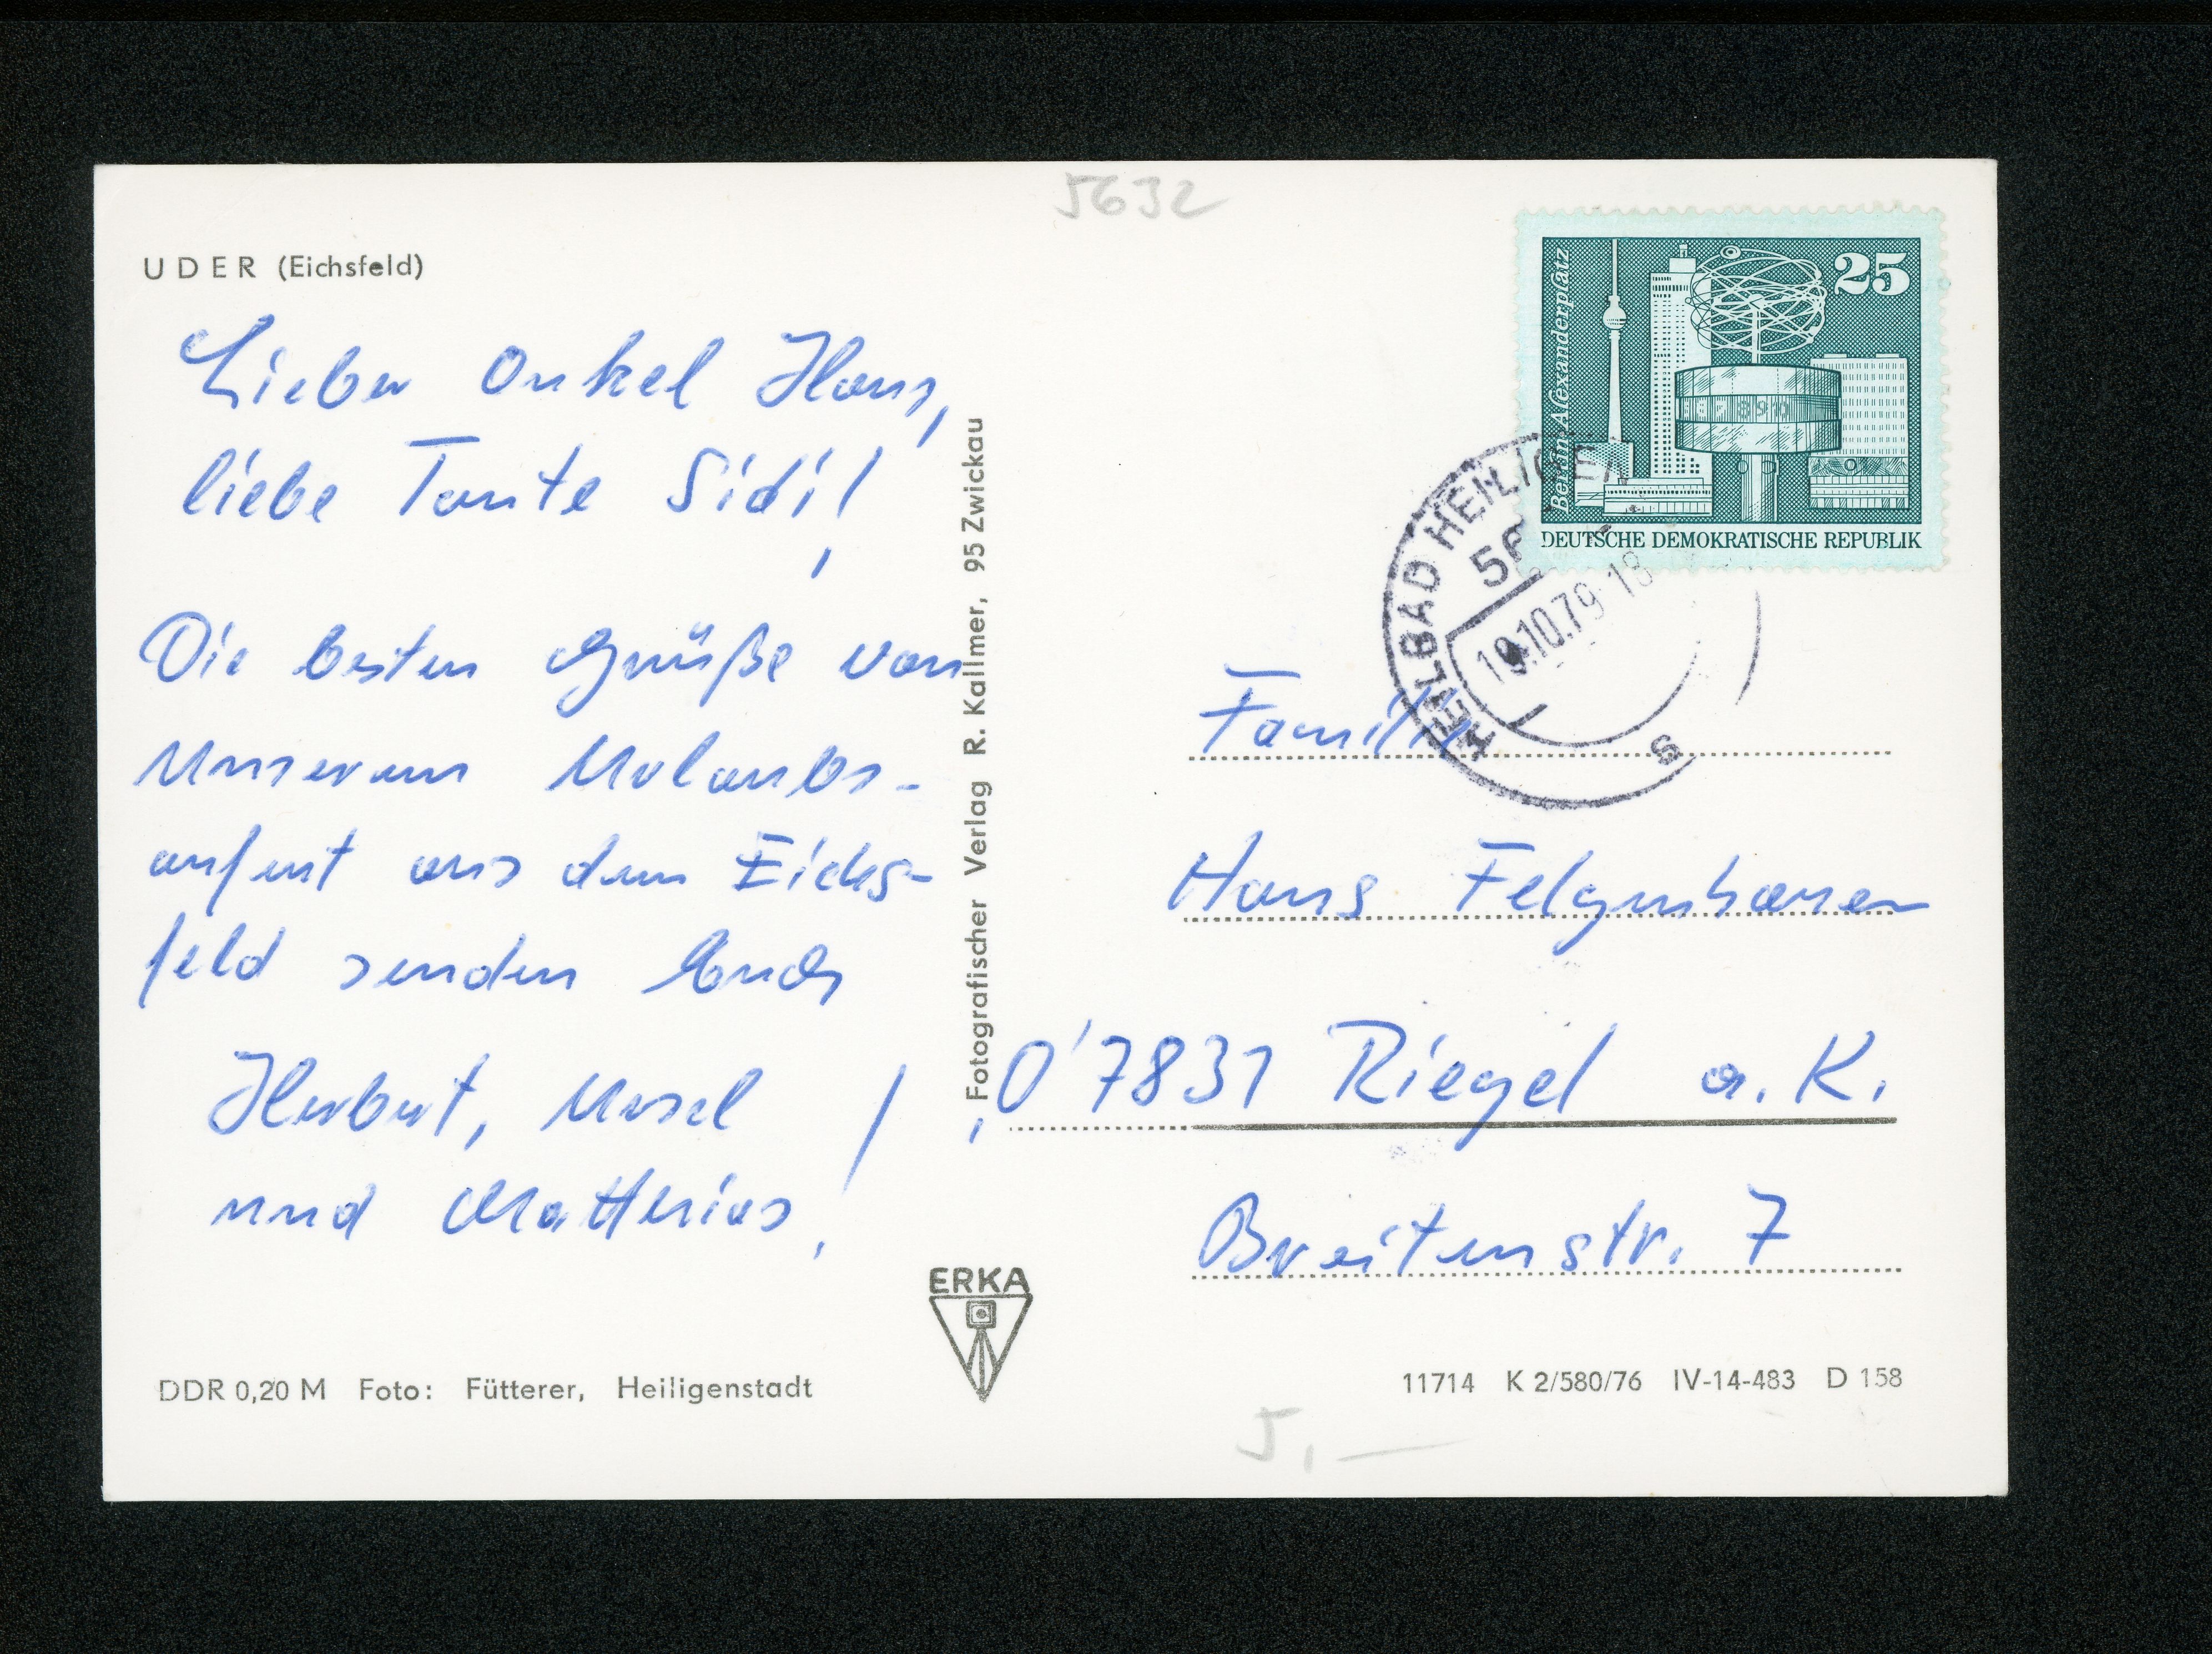 5632
UDER (Eichsfeld)
Lieber Onkel Hans,
liebe Tante Sidi!
Die besten Grüße von
unserem Urlaubs-
aufent aus dem Eichs-
feld senden Euch
Herbert, Ursel
und Matthias
Fotografischer Verlag R. Kallmer, 95 Zwickau
ERKA
DDR 0,20 M Foto: Fütterer, Heiligenstadt
25
Berlin-Alexanderplatz
DEUTSCHE DEMOKRATISCHE REPUBLIK
HEILBAD HEILIGEN
56
19.10.79-18
s
Familie
Hans Felgenhauer
7831 Riegel a. K.
Breitenstr. 7
11714 K 2/580/76 IV-14-483 D 158
5,—